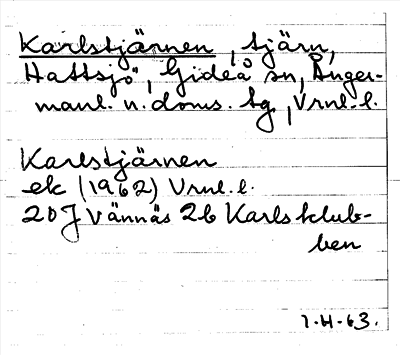 Karlstjärnen, tjärn,
Hattsjö, Gideå sn, Ånger-
manl. n. doms. tg, Vrnl. l.
Karlstjärnen
ek (1962) Vrnl. l.
20J Vännäs 2b Karlsklub-
ben
1.4.63.